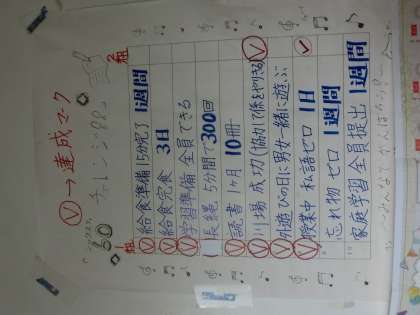 Ⓥ→達成マーク
チャレンジ
2組
1組
給食準備15分完了 1週間
給食完食 3日
学習準備 全員できる
長縄 5分間で300回
読書 1ヶ月 10冊
川場 成功(協力で係をやりきる)
外遊びの日に男女一緒に遊ぶ
授業中 私語ゼロ 1日
忘れ物 ゼロ 1週間
家庭学習 全員提出 1週間